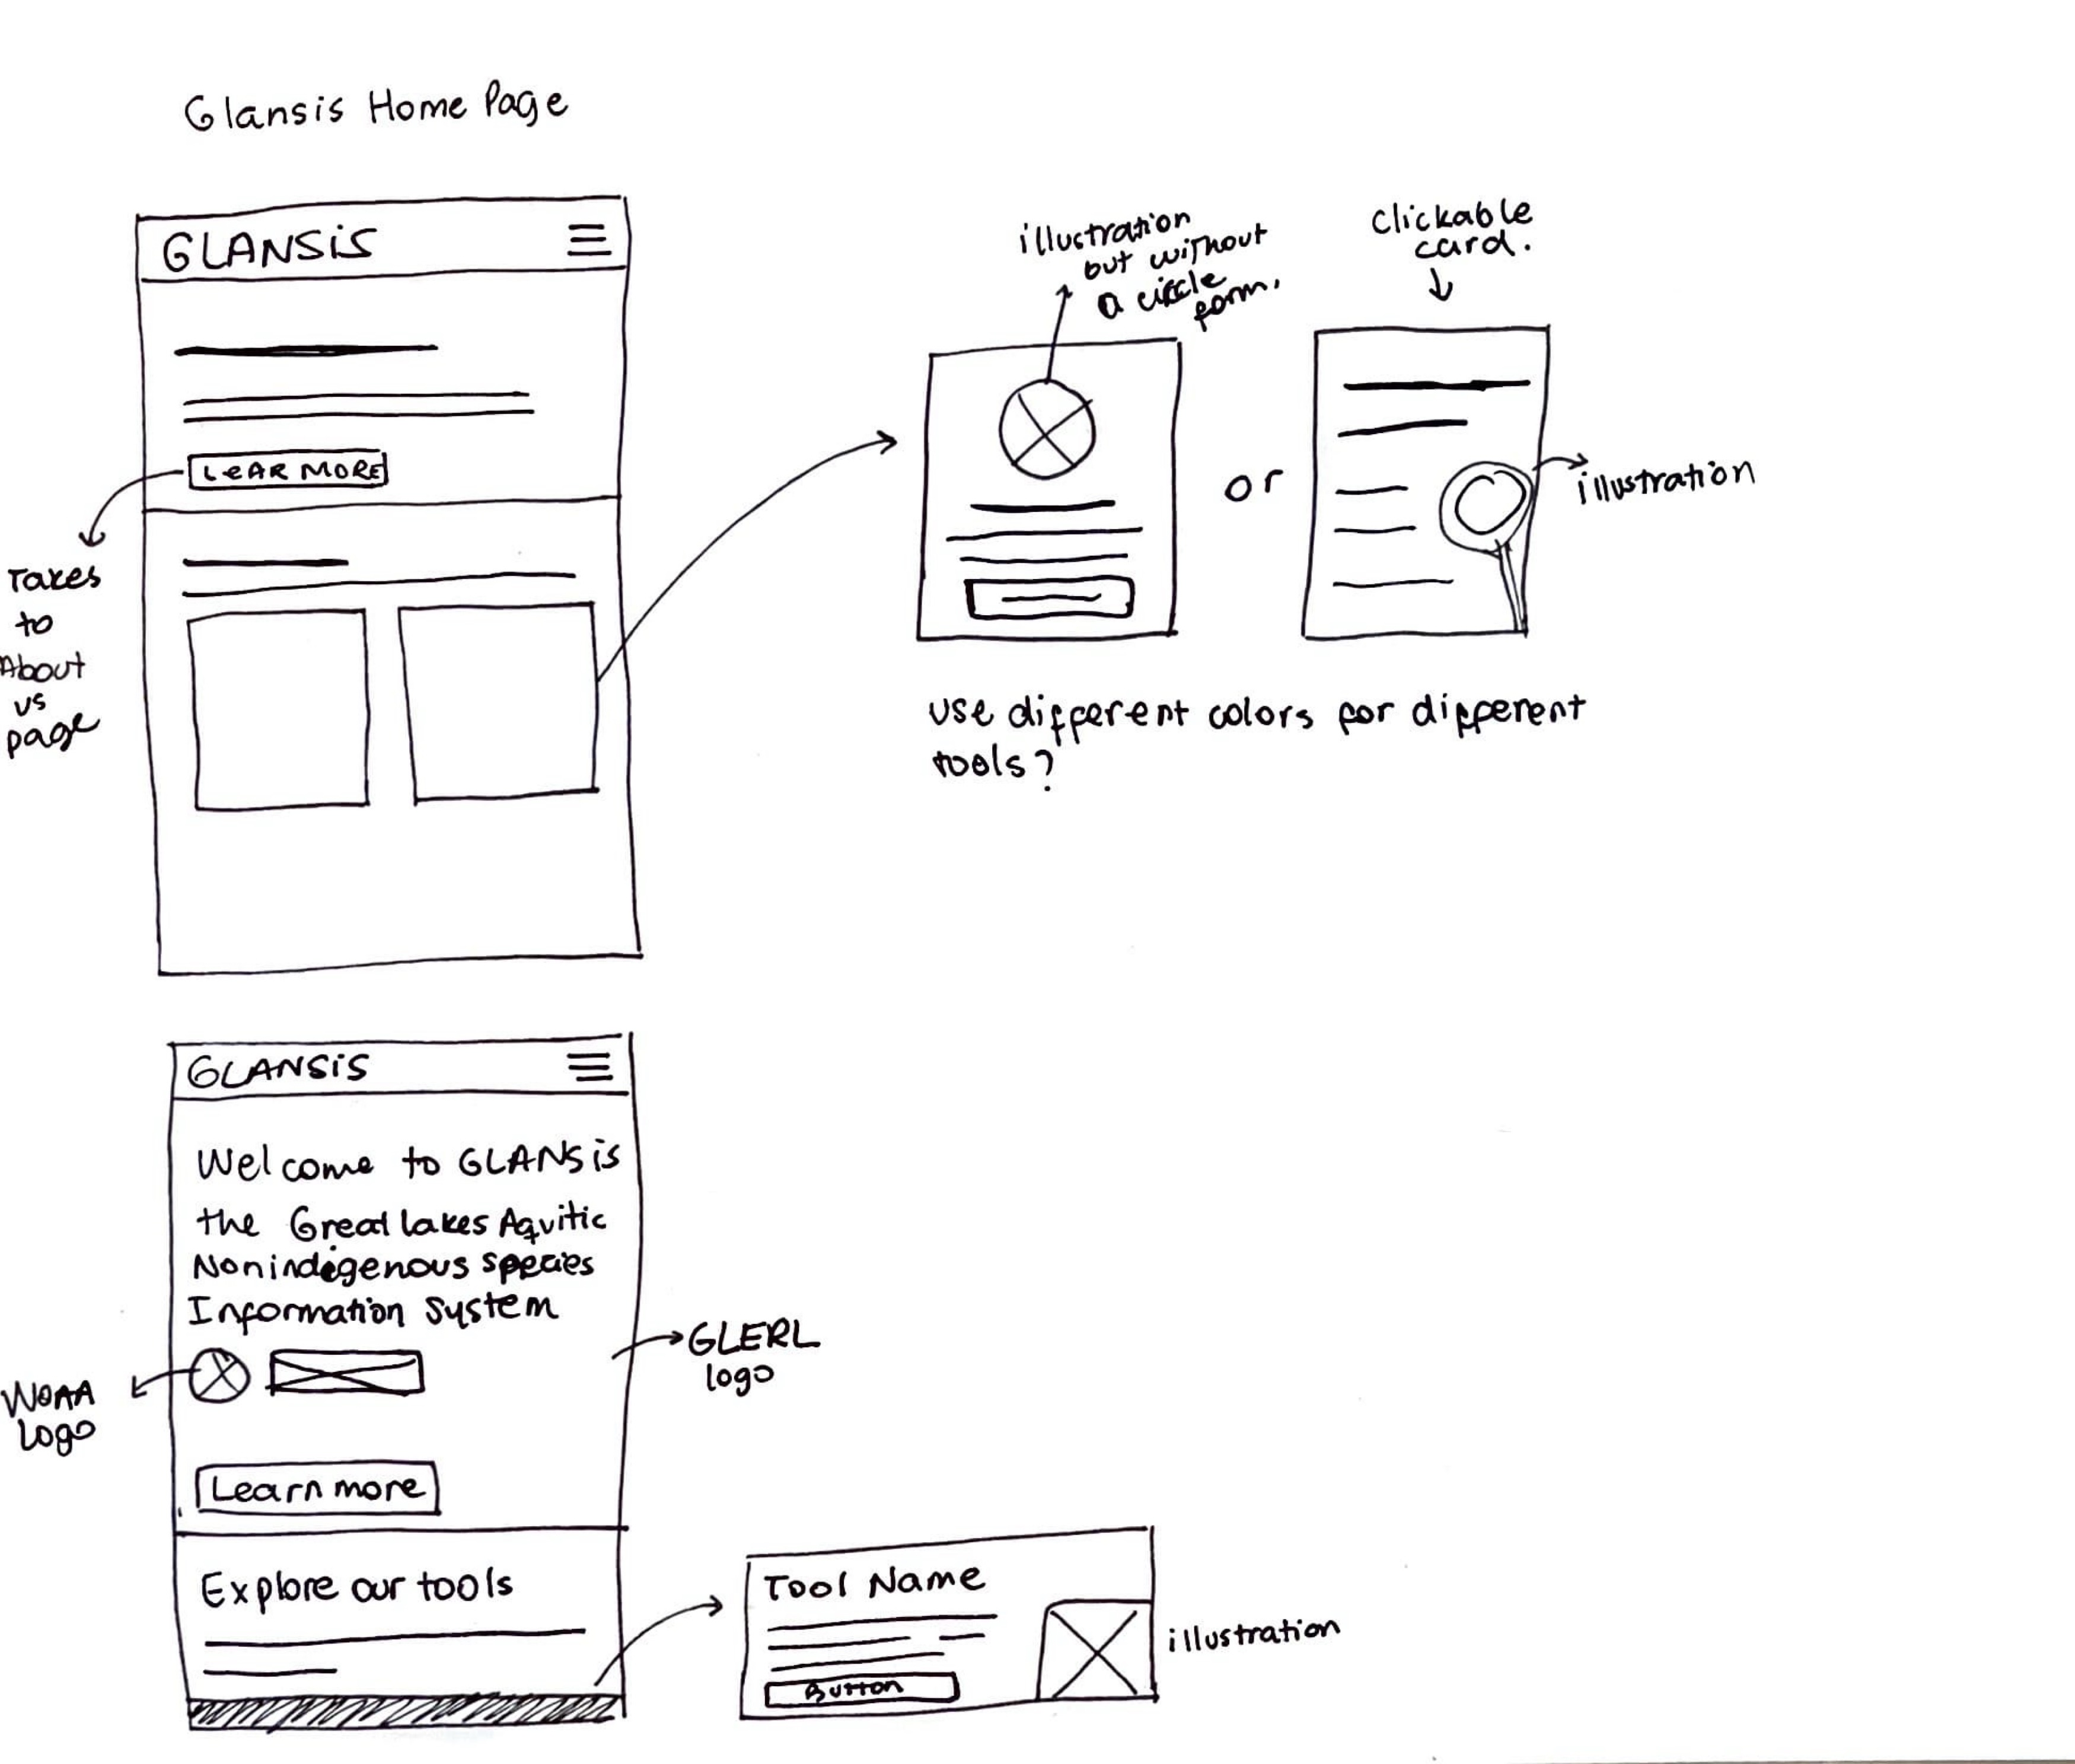 Glansis Home Page
GLANSiS
LeAR MORE
Takes
to
About
us
page
illustration
but without
a circle
form.
clickable
card.
or
illustration
use different colors for different
tools?
GLANSiS
Welcome to GLANSis
the Great lakes Aquitic
Nonindigenous species
Information system
GLERL
logo
NOAA
logo
Learn more
Explore our tools
Tool Name
Button
illustration